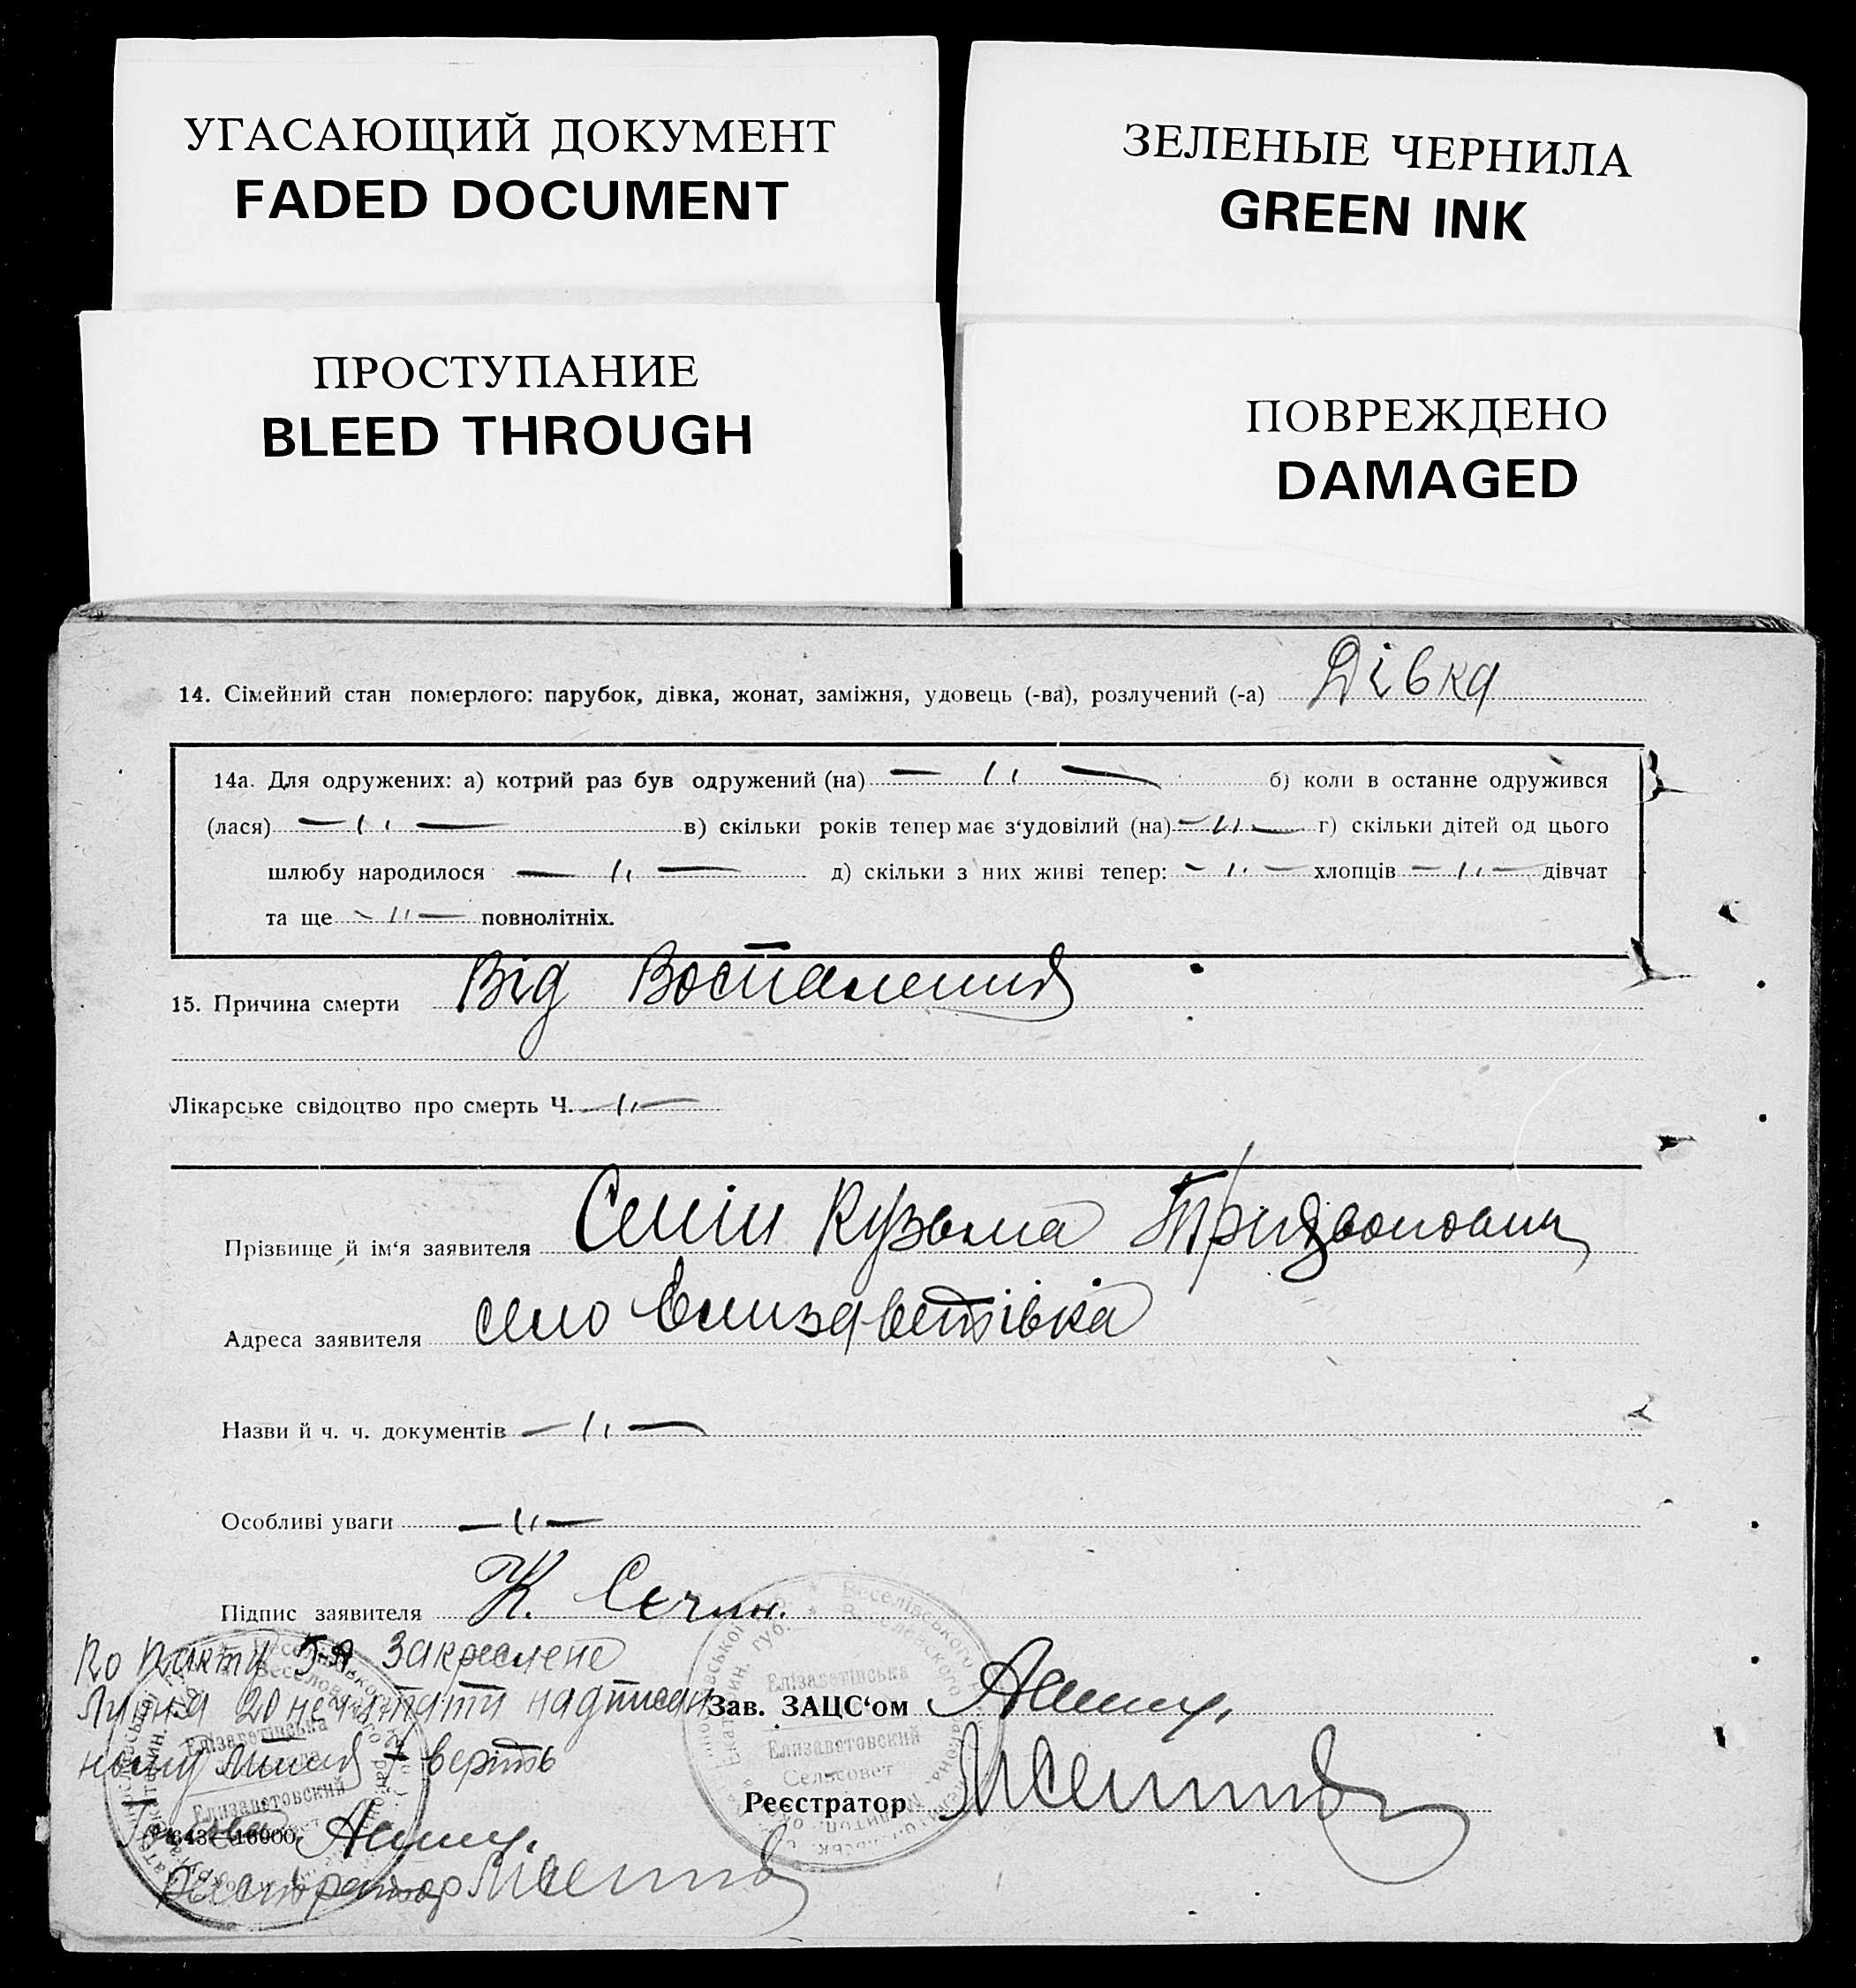 УГАСАЮЩИЙ ДОКУМЕНТ
FADED DOCUMENT
ЗЕЛЕНЫЕ ЧЕРНИЛА
GREEN INK
ПРОСТУПАНИЕ
BLEED THROUGH
ПОВРЕЖДЕНО
DAMAGED
14. Сімейний стан померлого: парубок, дівка, жонат, заміжня, удовець (-ва), розлучений (-а) Дівка
14а. Для одружених: а) котрий раз був одружений (на) — ׀׀ — б) коли в останне одружився
(лася) — ׀׀ — в) скільки років тепер має з‘удовілий (на) — ׀׀ — г) скільки дітей од цього
шлюбу народилося — ׀׀ — д) скільки з них живі тепер: — ׀׀ — хлопців — ׀׀ — дівчат
та ще — ׀׀ — повнолітніх.
15. Причина смерти Від Воспаления
Лікарське свідоцтво про смерть Ч. — ׀׀ —
Прізвище й ім‘я заявителя Кузьма
Адреса заявителя село Єлизаветівка
Назви й ч. ч. документів — ׀׀ —
Особливі уваги — ׀׀ —
Підпис заявителя К.
По пакту 5-я Закреслене
20 не читати надписан
верить
Зав. ЗАЦС‘ом
Реєстратор
Елізаветівська
Елизаветовский
Сельсовет
Елізаветівська
Елизаветовский
643—16000
Реєстратор